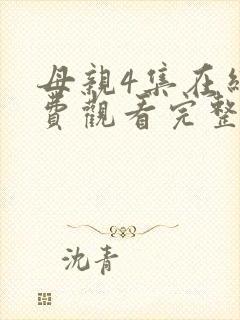 母親4集在線
費觀看完整
沈青